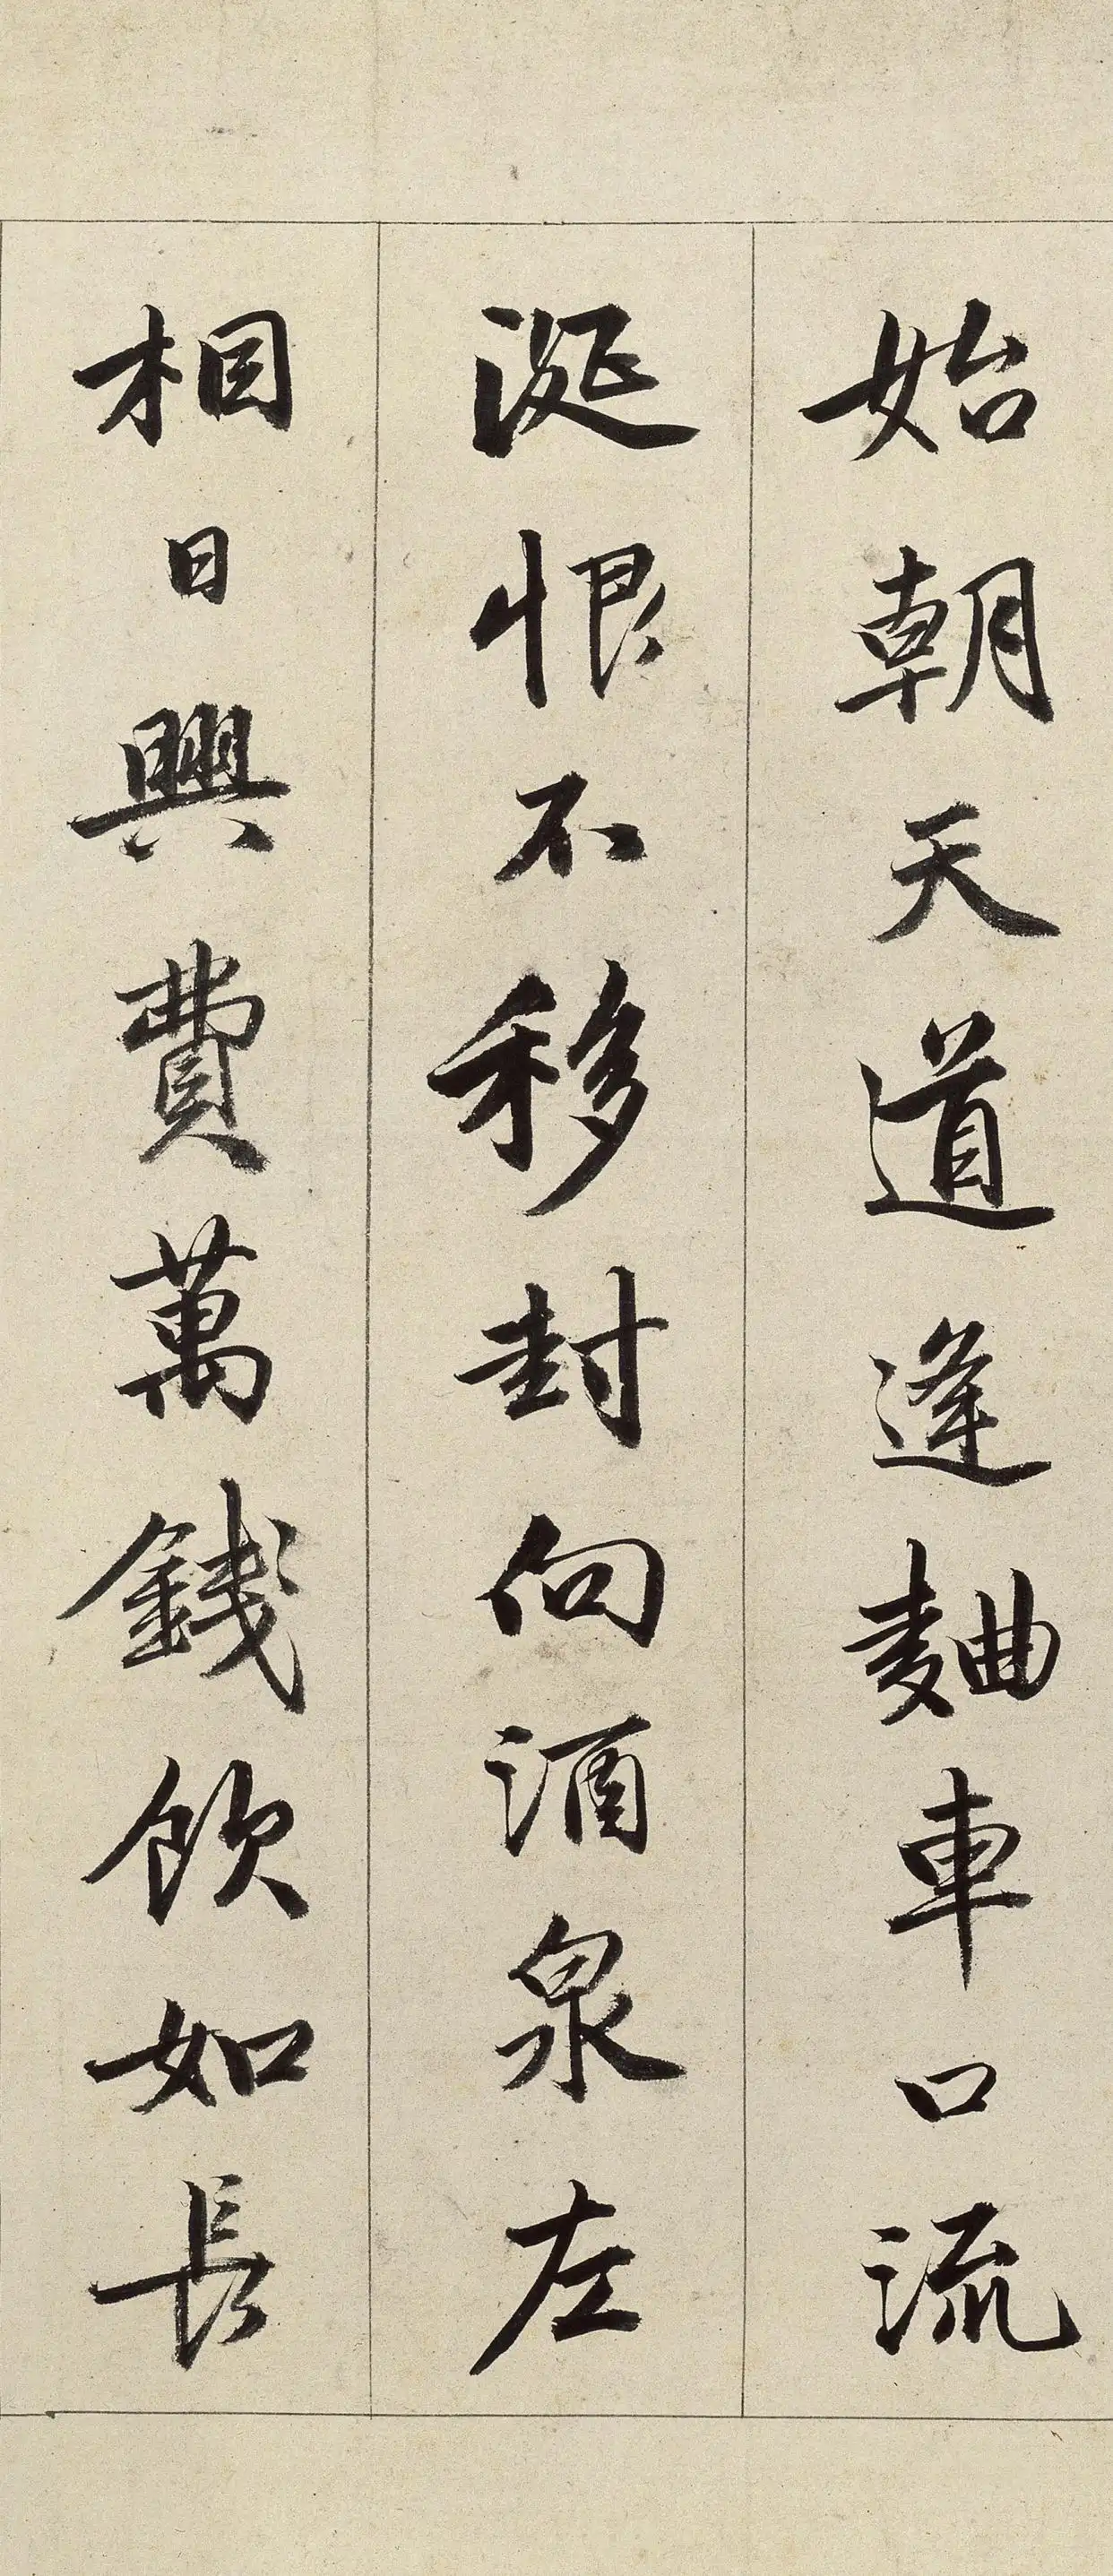 始朝天道逢麯車口流
涎恨不移封向酒泉左
相日興費萬錢飲如長